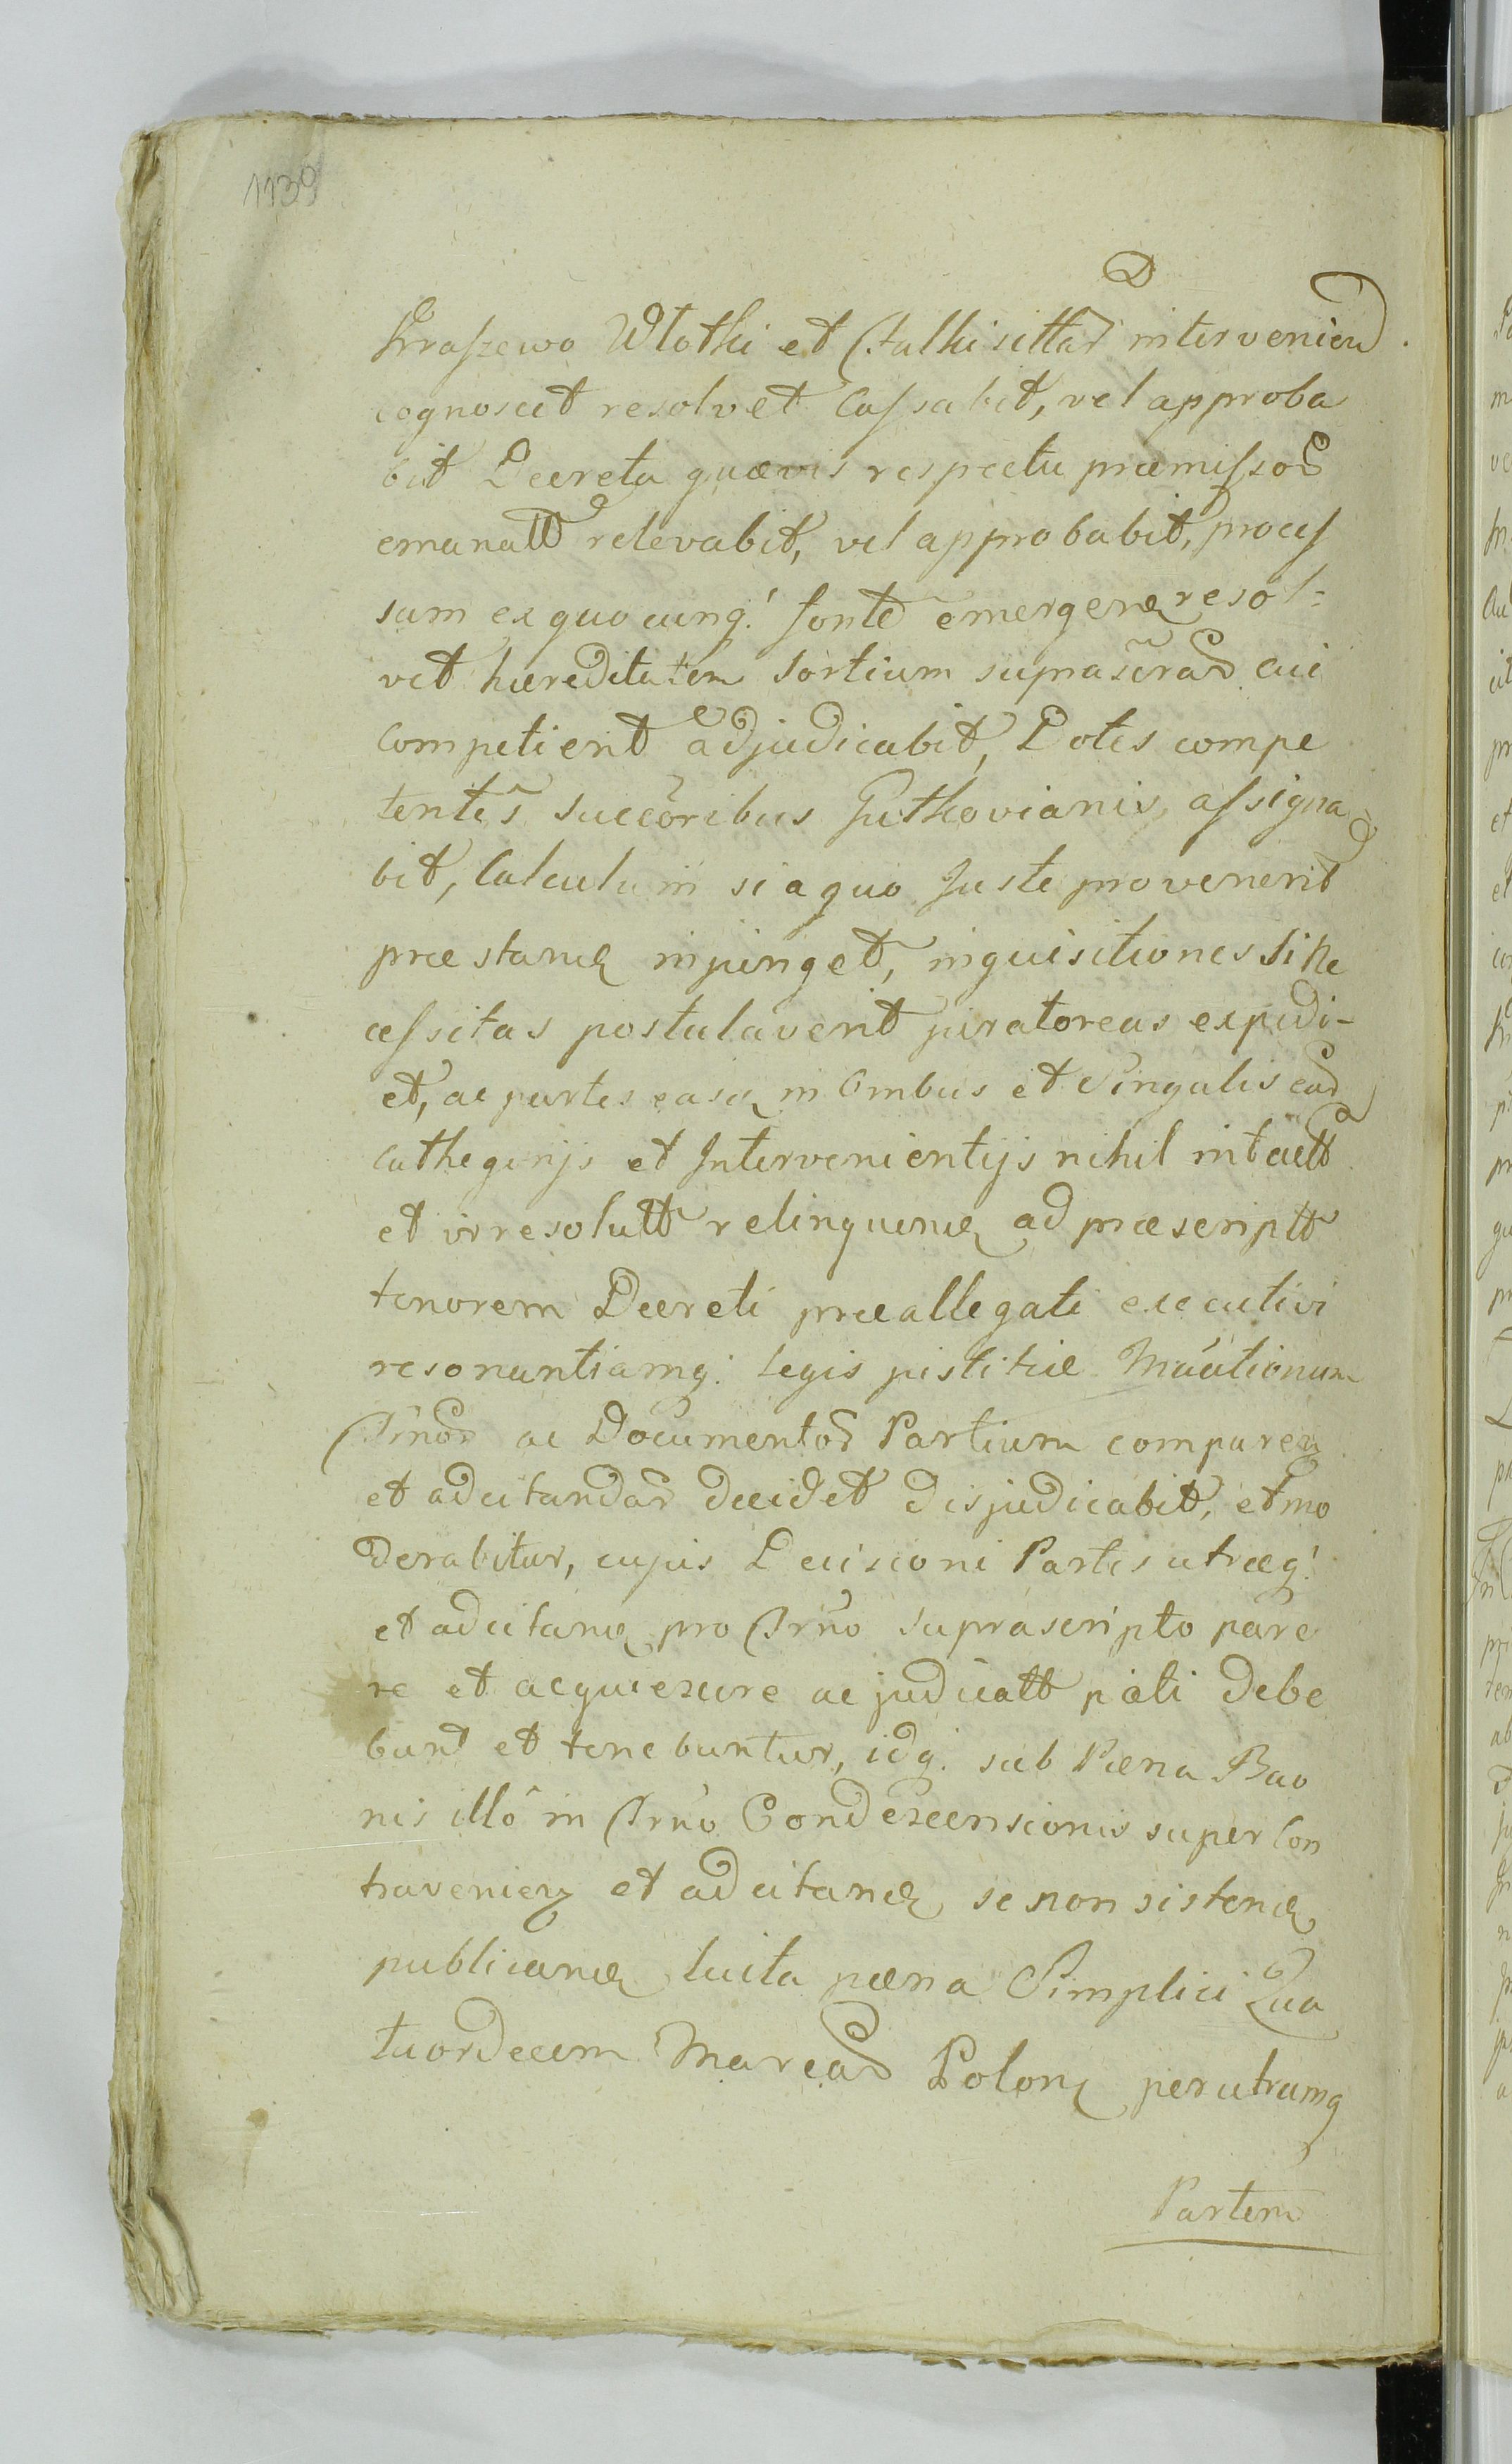 1139
Kraszewo Wlotki et Chalki sittar intervenien
cognoscet resolvet Cassabit, vel approba
bit Decreta quævis respectu præmissor
emanatt relevabit, vel approbabit, proces
sum ex quocunq: fonte emergen resol:
vet hæreditatem Sortium suprascrar cui
Competierit adjudicabit, Dotes compe
tentes succoribus Gutkovianis assigna
bit, Calculum si a quo Juste provenerit
præstand injunget, inquisitiones si ne
cessitas postulaverit juratoreas expedi-
et, ac partes easq in Ombus et Singulis ear
Cathegorijs et Intervenientijs nihil intactt
et irresolutt relinquend ad præscriptt
tenorem Decreti præallegati executivi
resonantiamq: Legis justitiæ
Trnor ac Documentor Partium comparen
et adcitandar decidet disjudicabit, et mo
derabitur, cujus Decisioni Partes utræq:
et adcitand pro Trno suprascripto pare
re et acquiescere ac judicatt pati debe
bunt et tenebuntur, idq: sub Pæna Bao
nis illo in Trno Condescensionis super Con
travenien et adcitand se non sistend
publicand luita pæna Simplici Qua
tuordecem Marcar Polon per utramq
Partem